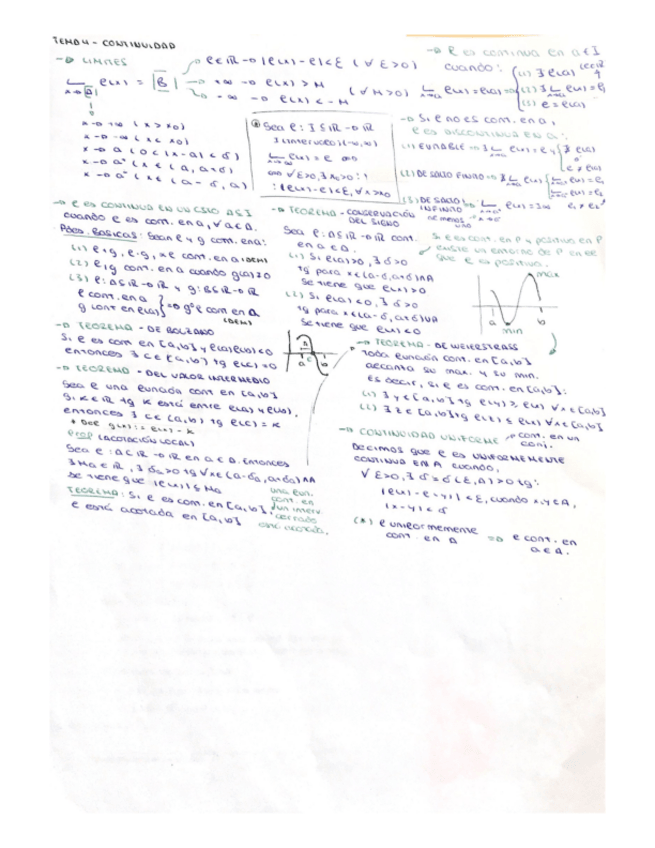 TEMA 4 - CONTINUIDAD
→ LIMITES
l∈ℝ → |f(x) - l| < ε (∀ε>0)
+∞ → f(x) > M
-∞ → f(x) < -M
(∀M>0)
x→+∞ (x > x0)
x→-∞ (x < x0)
x→a (0<|x-a|<δ)
x→a⁺ (x ∈ (a, a+δ)
x→a⁻ (x ∈ (a-δ, a)
Sea f: I ⊆ℝ → ℝ
I intervalo
∀ε>0, ∃x0>0:
|f(x)-l|<ε, ∀x>x0
→ f es continua en a∈I
cuando:
(1) ∃ f(a)
(3) l = f(a)
→ Si f no es cont. en a,
f es discontinua en a:
(1) EVITABLE
(2) DE SALTO FINITO
(3) DE SALTO INFINITO
→ f es CONTINUA EN UN CJTO A⊆I
cuando f es cont. en a, ∀a∈A.
Pdes. Básicas: Sean f y g cont. en a:
(1) f+g, f·g, αf cont. en a (DEM)
(2) f/g cont. en a cuando g(a)≠0
(3) f: A⊆ℝ→ℝ y g: B⊆ℝ→ℝ
f cont. en a
g cont en f(a)
⇒ g∘f con en a
(DEM)
→ TEOREMA - CONSERVACIÓN
DEL SIGNO
Sea f: A⊆ℝ→ℝ cont.
en a∈A.
(1) Si f(a)>0, ∃δ>0
tq para x∈(a-δ, a+δ)∩A
se tiene que f(x)>0
(2) Si f(a)<0, ∃δ>0
tq para x∈(a-δ, a+δ)∩A
se tiene que f(x)<0
Si f es cont. en P y positiva en P
existe un entorno de P en el
que f es positiva.
max
a
b
min
→ TEOREMA - DE BOLZANO
Si f es con en [a,b] y f(a)f(b)<0
entonces ∃ c∈(a,b) tq f(c)=0
a
c
b
→ TEOREMA - DEL VALOR INTERMEDIO
Sea f una función cont en [a,b]
y k∈ℝ tq k está entre f(a) y f(b),
entonces ∃ c∈(a,b) tq f(c)=k
g(x):=f(x)-k
PROP (ACOTACIÓN LOCAL)
Sea f: A⊂ℝ→ℝ en a∈A. Entonces
∃Ma∈ℝ, ∃δa>0 tq ∀x∈(a-δa, a+δa)∩A
se tiene que |f(x)|≤Ma
TEOREMA: Si f es con. en [a,b],
f está acotada en [a,b]
una fun.
cont. en
un interv.
cerrado
está acotada.
→ TEOREMA - DE WEIERSTRASS
Toda función cont. en [a,b]
alcanza su max. y su min.
Es decir, si f es cont. en [a,b]:
(1) ∃ y∈[a,b] tq f(y)≥f(x) ∀x∈[a,b]
(2) ∃ z∈[a,b] tq f(z)≤f(x) ∀x∈[a,b]
→ CONTINUIDAD UNIFORME
cont. en un
conj.
Decimos que f es UNIFORMEMENTE
CONTINUA EN A cuando,
∀ε>0, ∃δ=δ(ε,A)>0 tq:
|f(x)-f(y)|<ε, cuando x,y∈A,
|x-y|<δ
(*) f uniformemente
cont. en A
⇒ f cont. en
a∈A.